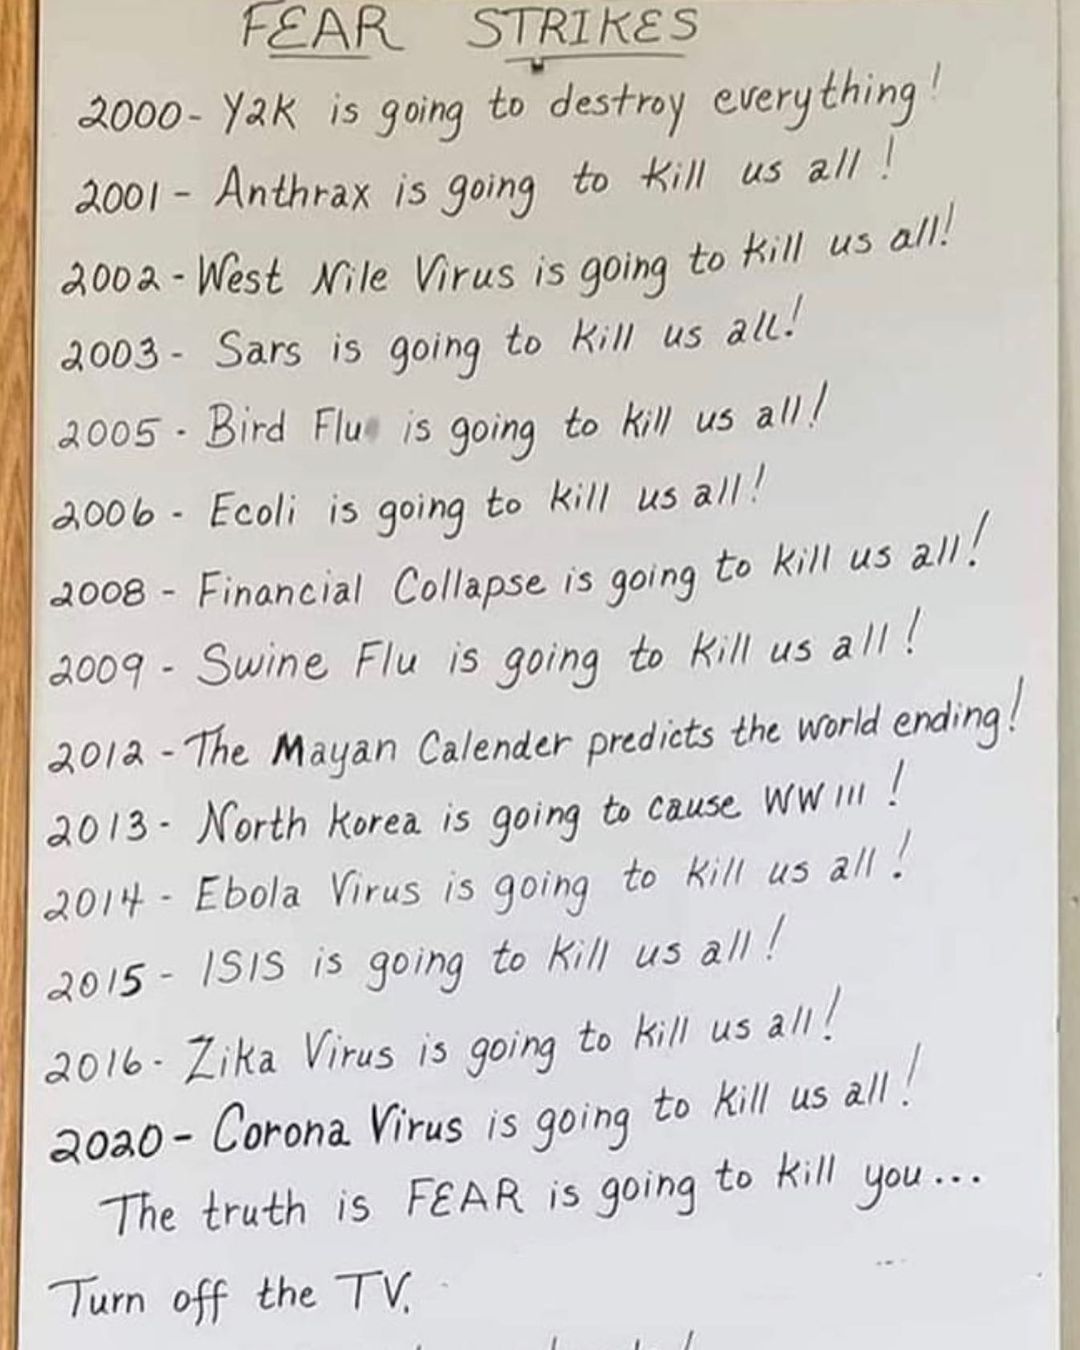 FEAR STRIKES
2000- Y2K is going to destroy everything!
2001- Anthrax is going to kill us all!
2002-West Nile Virus is going to kill us all!
2003- Sars is going to kill us all!
2005- Bird Flu is going to kill us all!
2006- Ecoli is going to kill us all!
2008- Financial Collapse is going to kill us all!
2009- Swine Flu is going to kill us all!
2012-The Mayan Calender predicts the world ending!
2013- North Korea is going to cause WW III!
2014- Ebola Virus is going to kill us all!
2015- ISIS is going to kill us all!
2016- Zika Virus is going to kill us all!
2020- Corona Virus is going to kill us all!
The truth is FEAR is going to kill you...
Turn off the TV.